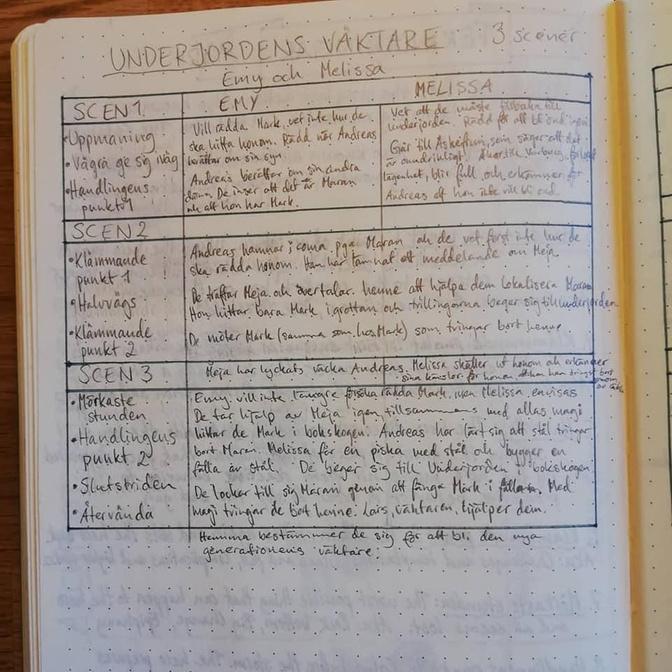 UNDERJORDENS VÄKTARE 3 scener
Emy och Melissa
SCEN 1 EMY MELISSA
• Uppmaning
• Vägra ge sig iväg
• Handlingens
punkt 1
Vill rädda Mark, vet inte hur de
ska hitta honom. Rädd när Andreas
berättar om sin syn.
Andreas berättar om sin andra
dröm. De inser att det är Maran
och att hon har Mark.
Vet att de måste tillbaka till
underjorden. Rädd för att bli ond igen
Går till Askefrun, som säger att det
är oundvikligt. Åker till
lägenhet, blir full och erkänner för
Andreas att hon inte vill bli ond.
SCEN 2
• Klämmande
punkt 1
• Halvvägs
• Klämmande
punkt 2
Andreas hamnar i coma pga Maran och de vet först inte hur de
ska rädda honom. Han har lämnat ett meddelande om Meja
De träffar Meja och övertalar henne att hjälpa dem lokalisera Maran
Hon hittar bara Mark i grottan och trillingarna beger sig till underjorden
De möter Mark (samma som hos Mark) som tvingar bort henne.
SCEN 3 Meja har lyckats väcka Andreas. Melissa skäller ut honom och erkänner
sina känslor för honom att han tvingat bort
• Mörkaste
stunden
• Handlingens
punkt 2
• Slutstriden
• Återvända
Emy vill inte längre försöka rädda Mark, men Melissa envisas
De tar hjälp av Meja igen, tillsammans med allas magi
hittar de Mark i bokskogen. Andreas har lärt sig att stål tvingar
bort Maran. Melissa får en piska med stål och bygger en
fälla av stål. De beger sig till Underjorden i bokskogen
De lockar till sig Maran genom att fånga Mark i fällan. Med
magi tvingar de bort henne. Lars, väktaren, hjälper dem.
Hemma bestämmer de sig för att bli den nya
generationens väktare.